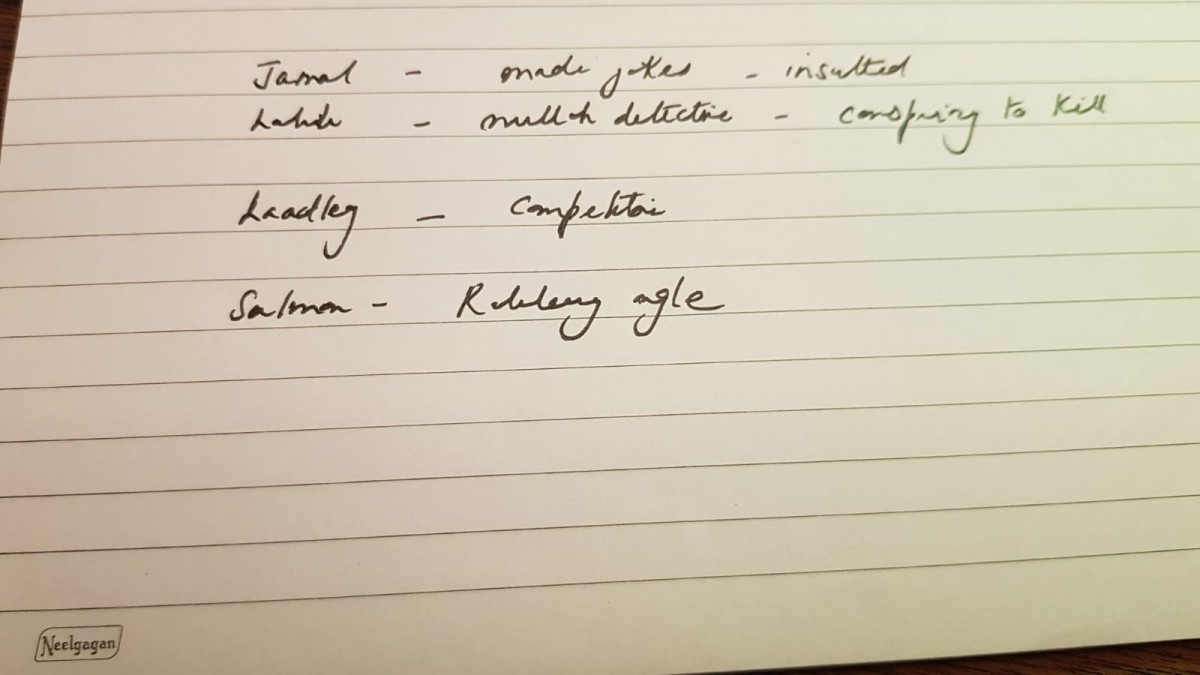 Jamal - made jokes - insulted
- detective - conspiring to kill
Laadley - Competitor
Salman - Robbery angle
Neelgagan